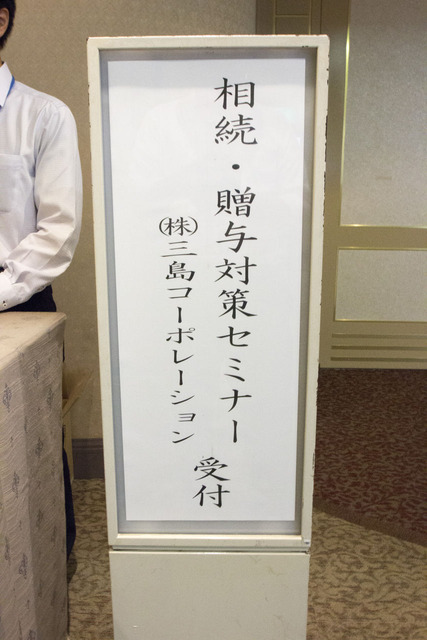 相続・贈与対策セミナー
㈱三島コーポレーション
受付